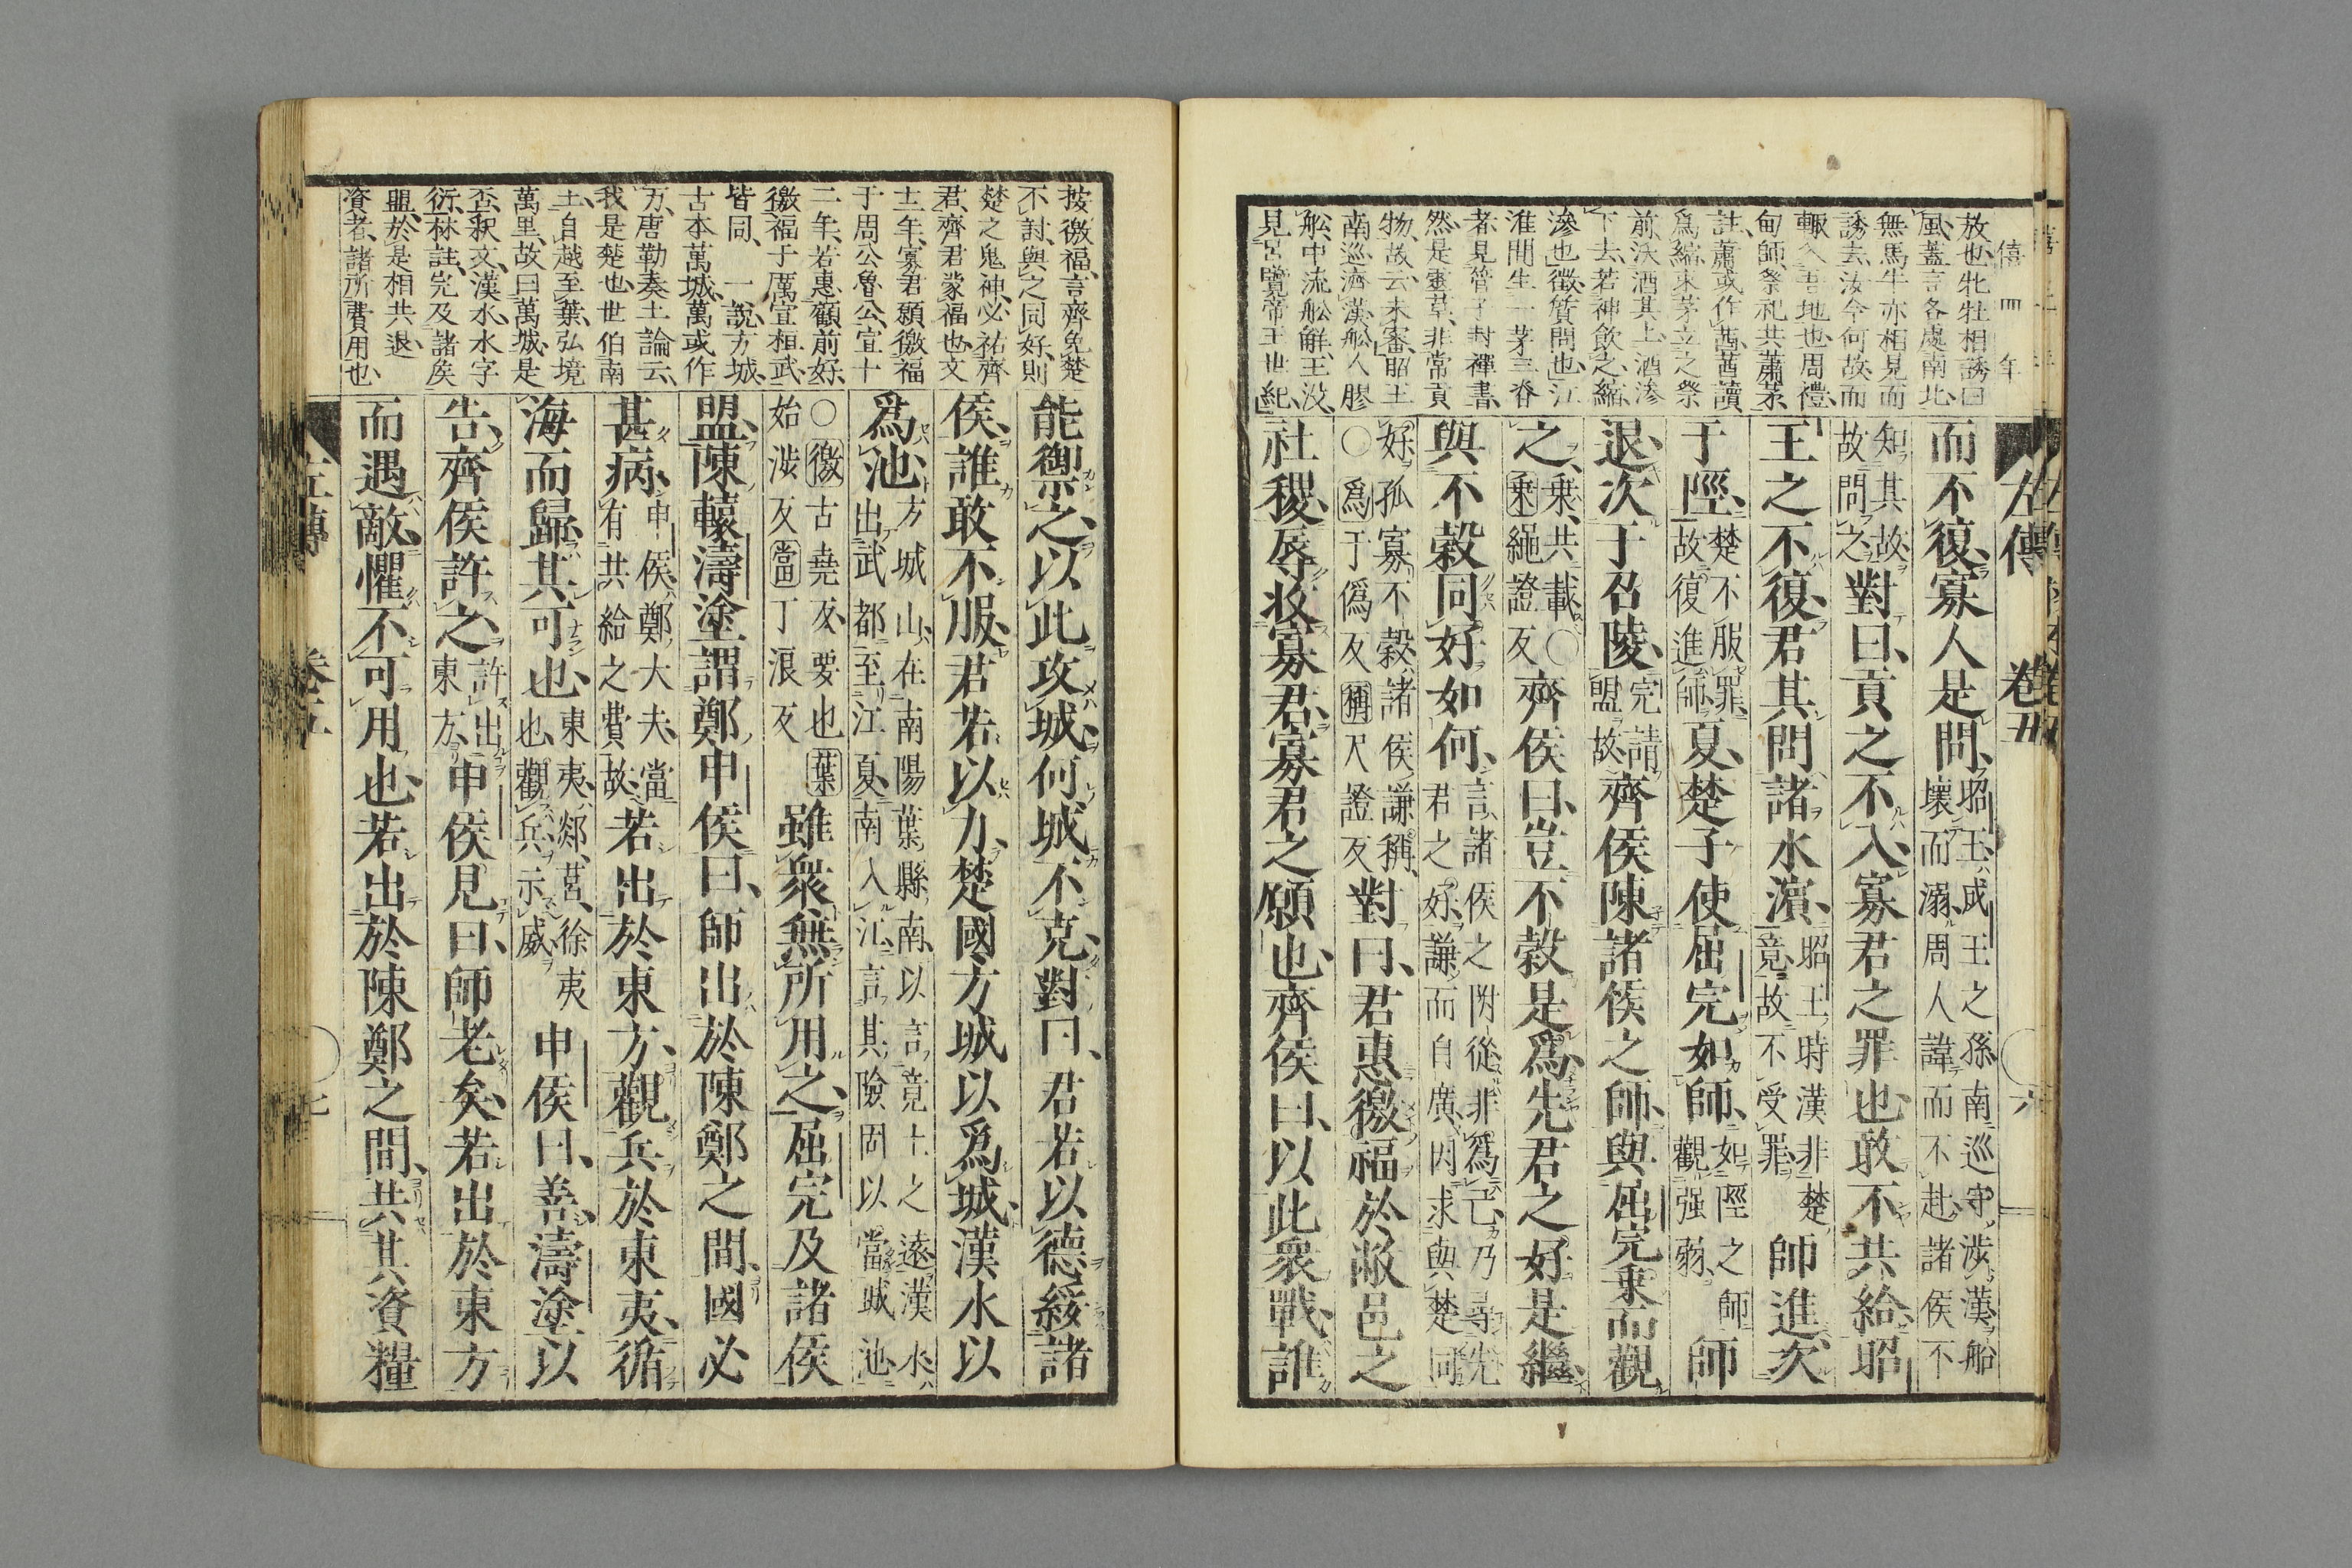 放也、牝牡相誘曰
風、蓋言各處南北、
無馬牛亦相見而
誘去、汝今何故而
輙入吾地也、周禮、
甸師、祭祀共蕭茅、
註、蕭或作莤、莤讀
爲縮、束茅立之祭
前、沃酒其上、酒滲
下去、若神飲之、縮
滲也、徴質問也、江
淮間生一茅三脊
者、見管子封禪書、
然是靈草、非常貢
物、故云未審、昭王
南巡濟漢、舩人膠
舩中流、舩解、王没、
見呂覽帝王世紀、
僖四年
左傳 卷五 六
而不復、寡人是問、
昭王、成王之孫南巡守、渉漢、船
壞而溺、周人諱而不赴、諸侯不
知其故、
故問之
對曰、貢之不入、寡君之罪也、敢不共給、昭
王之不復、君其問諸水濱、
昭王時漢非楚
竟、故不受罪
師進、次
于陘、
楚不服罪、
故復進師
夏、楚子使屈完如師、
如陘之師
觀强弱、
師
退、次于召陵、
完請
盟故、
齊侯陳諸侯之師、與屈完乘而觀
之、
乘、共載〇
乘繩證反
齊侯曰、豈不榖是爲、先君之好是繼、
與不榖同好、如何、
言諸侯之附從非爲己、乃尋先
君之好、謙而自廣、因求與楚同
好、孤寡不榖、諸侯謙稱、
〇爲于僞反稱尺證反
對曰、君惠徼福於敝邑之
社稷、辱收寡君、寡君之願也、齊侯曰、以此衆戰、誰
按徼福、言齊免楚
不討、與之同好、則
楚之鬼神、必祐齊
君、齊君蒙福也、文
十二年、寡君願徼福
于周公魯公、宣十
二年、若惠顧前好、
徼福于厲宣桓武、
皆同、一説、方城、
古本萬城、萬或作
方、唐勒奏土論云、
我是楚也、世伯南
土、自越至葉、弘境
萬里、故曰萬城、是
否、釋文、漢水、水字
衍、林註、完及諸侯
盟、於是相共退、
資者、諸所費用也、
能禦之、以此攻城、何城不克、對曰、君若以德綏諸
侯、誰敢不服、君若以力、楚國方城以爲城、漢水以
爲池、
方城山、在南陽葉縣南、以言竟土之遠、漢水、
出武都、至江夏南入江、言其險固以當城池
〇徼古堯反、要也葉
始渉反當丁浪反
雖衆、無所用之、屈完及諸侯
盟、陳轅濤塗謂鄭申侯曰、師出於陳鄭之間、國必
甚病、
申侯、鄭大夫、當
有共給之費故、
若出於東方、觀兵於東夷、循
海而歸、其可也、
東夷、郯、莒、徐夷
也、觀兵、示威、
申侯曰、善、濤塗以
告、齊侯許之、
許出
東方、
申侯見曰、師老矣、若出於東方
而遇敵、懼不可用也、若出於陳鄭之間、共其資糧
左傳 卷五 七